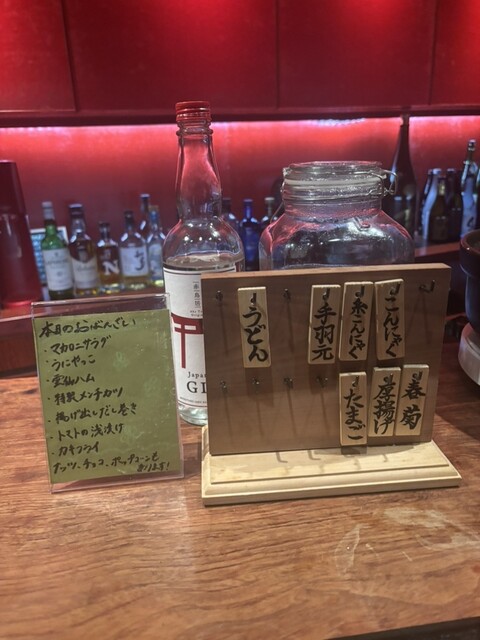 本日のおばんざい
・マカロニサラダ
・うにやっこ
・雲仙ハム
・特製メンチカツ
・揚げ出しだし巻き
・トマトの浅漬け
・カキフライ
ナッツ、チョコ、ポップコーンも
あります!
こんにゃく
糸こんにゃく
手羽元
うどん
春菊
厚揚げ
たまご
Japa
GI